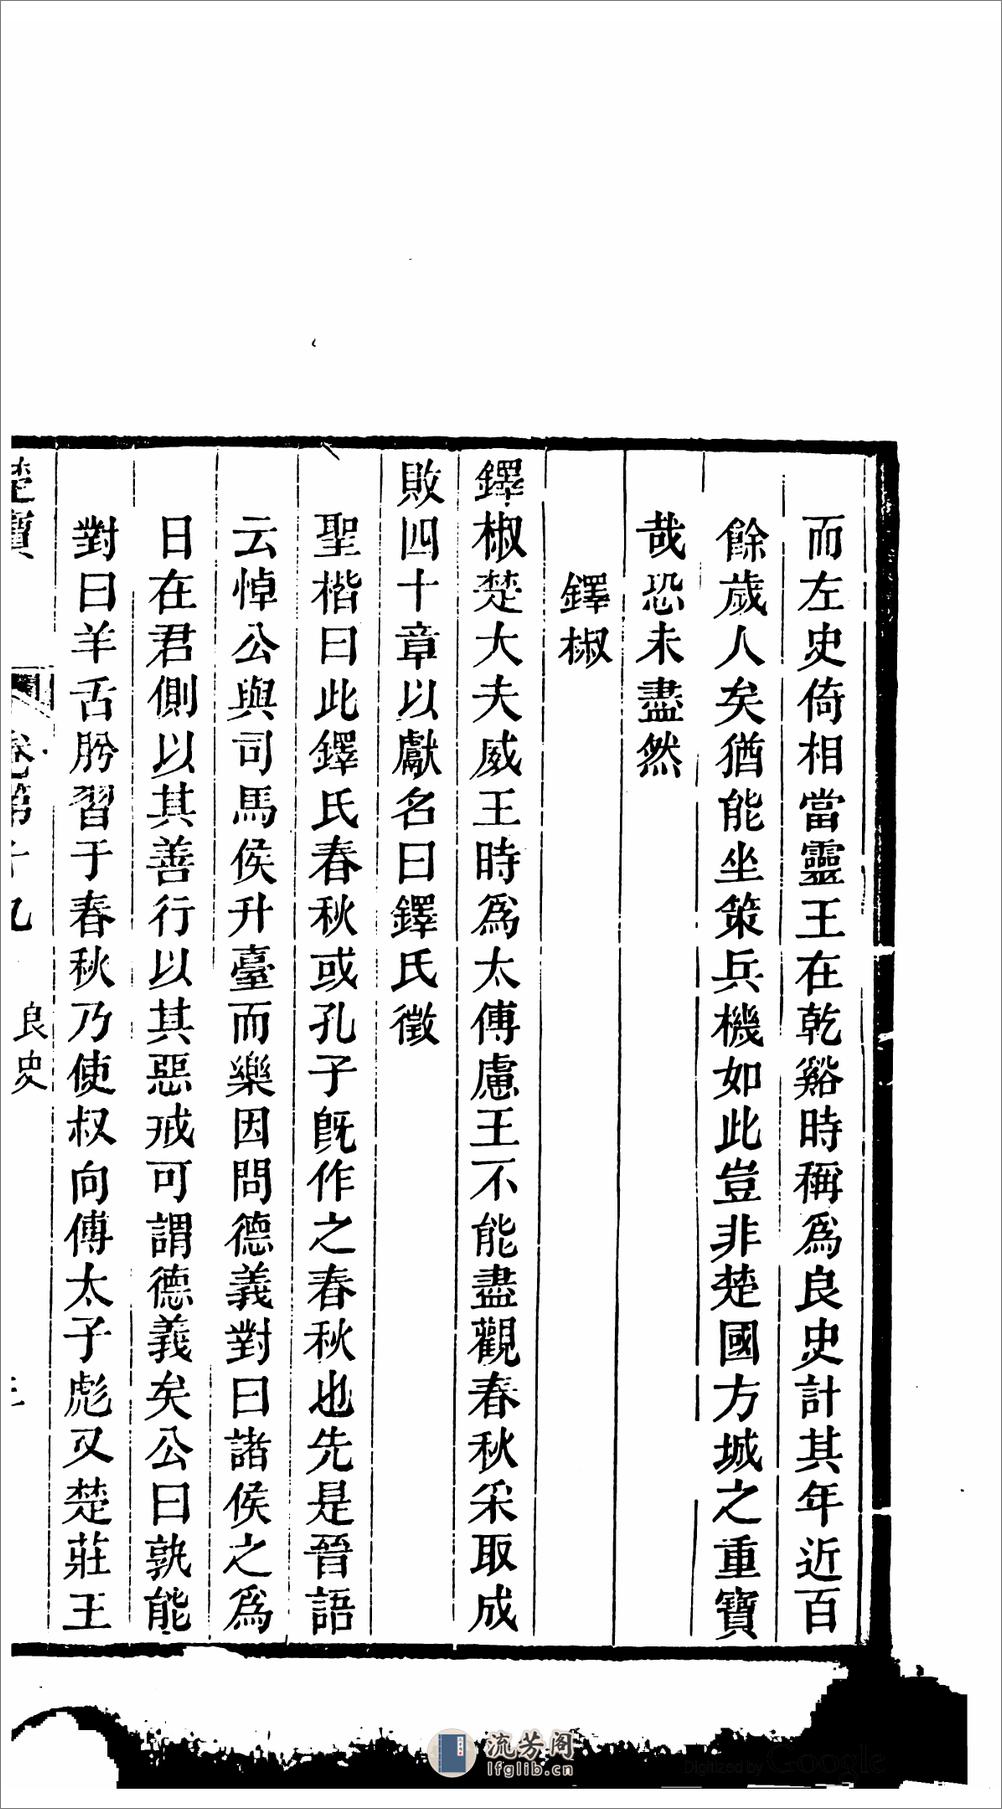 而左史倚相當靈王在乾谿時稱爲良史計其年近百
餘歲人矣猶能坐策兵機如此豈非楚國方城之重寶
哉恐未盡然
鐸椒
鐸椒楚大夫威王時爲太傅慮王不能盡觀春秋采取成
敗四十章以獻名曰鐸氏徵
聖楷曰此鐸氏春秋或孔子旣作之春秋也先是晉語
云悼公與司馬侯升臺而樂因問德義對曰諸侯之爲
日在君側以其善行以其惡戒可謂德義矣公曰孰能
對曰羊舌肹習于春秋乃使叔向傅太子彪又楚莊王
楚寶 卷第十九 良史
流芳阁
lfglib.cn
Digitized by Google